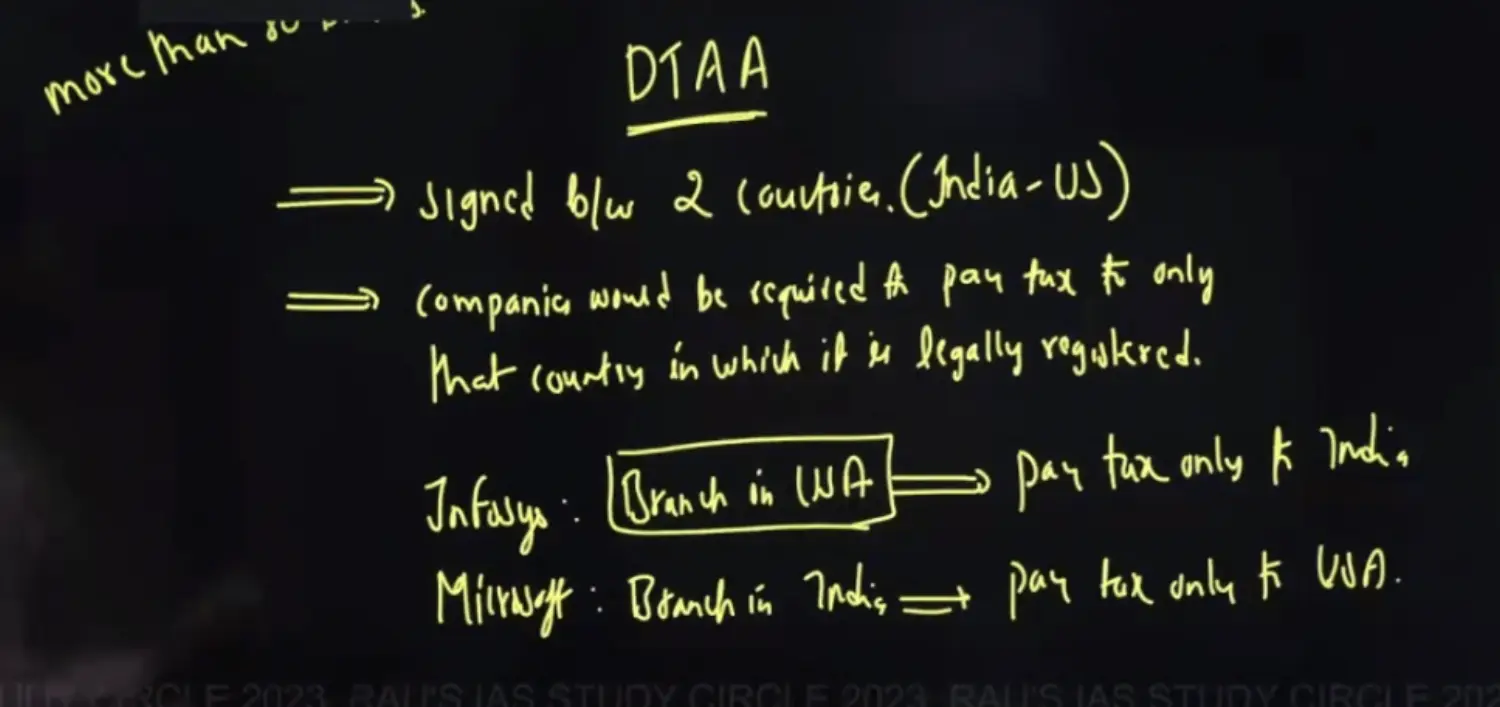 more than 80
DTAA
⟹ signed b/w 2 countries. (India-US)
⟹ companies would be required to pay tax to only
that country in which it is legally registered.
Infosys : Branch in USA ⟹ pay tax only to India
Microsoft : Branch in India ⟹ pay tax only to USA.
CIRCLE 2023 RAU'S IAS STUDY CIRCLE 2023 RAU'S IAS STUDY CIRCLE 202